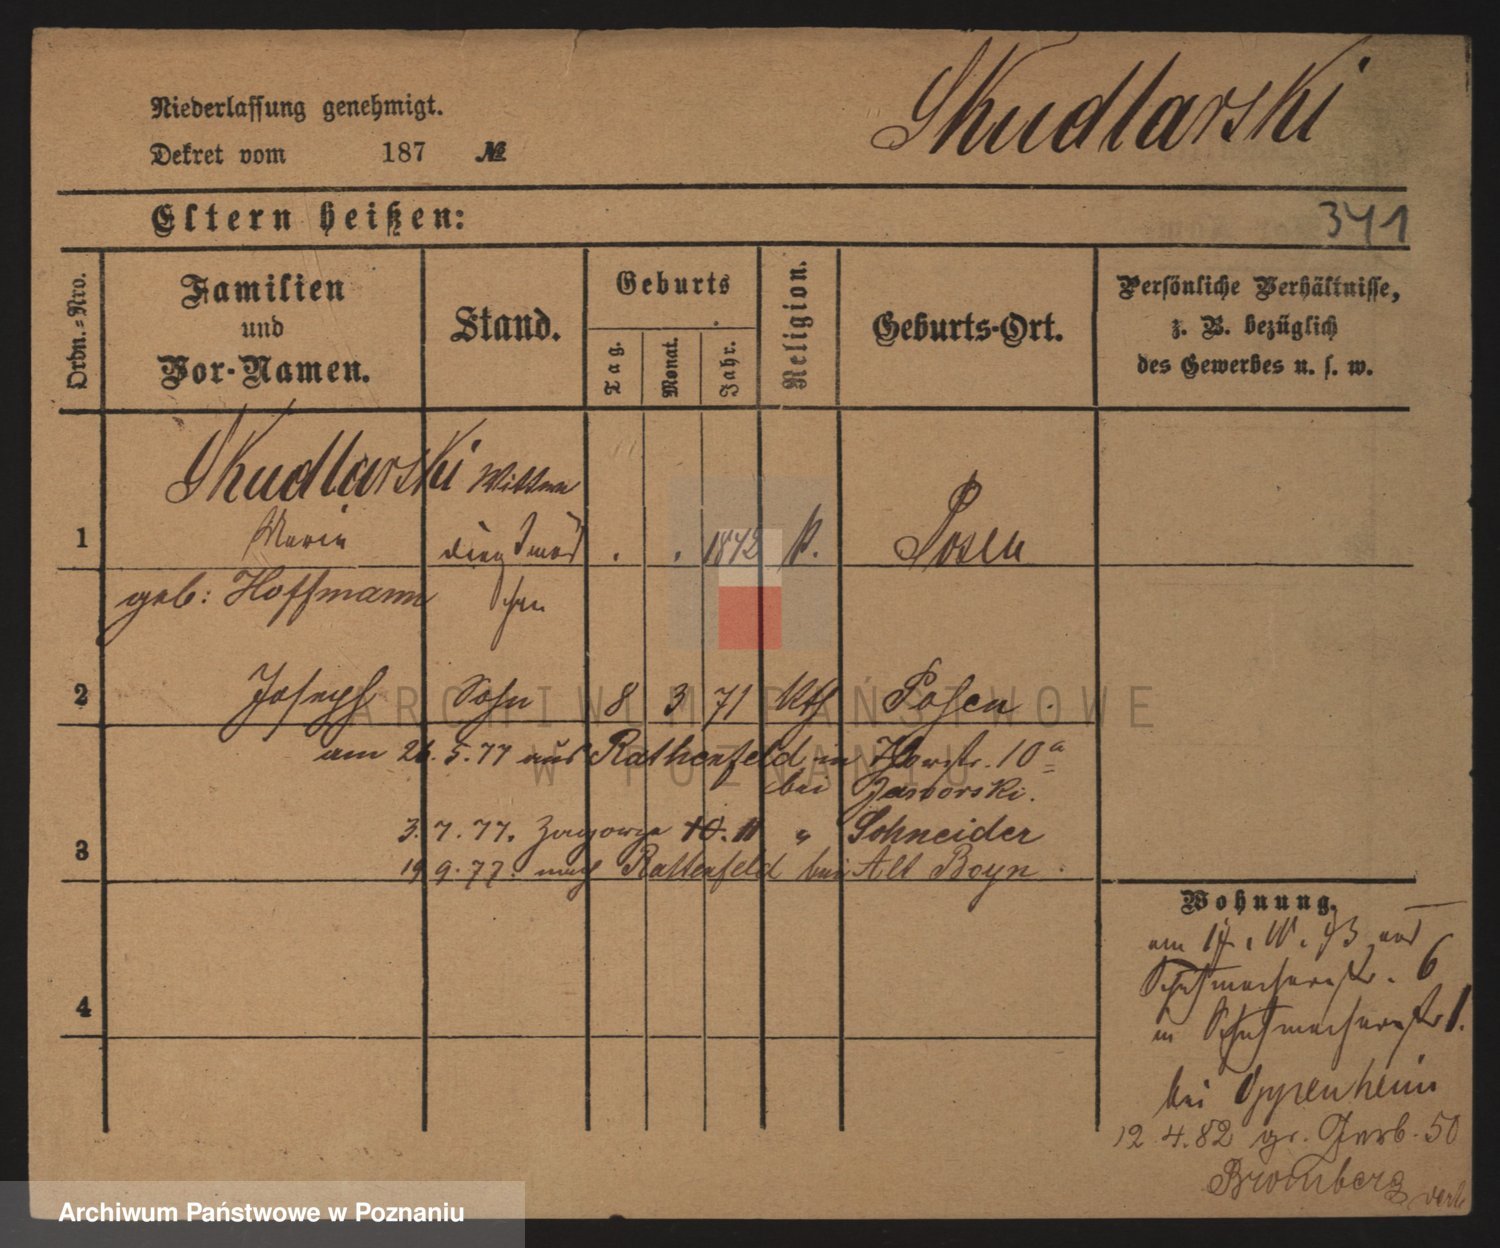 Skudlarski
Niederlassung genehmigt.
Dekret vom 187 №
Eltern heißen:
341
Ordn.-Nro.
Familien
und
Vor-Namen.
Stand.
Geburts
Tag.
Monat.
Jahr.
Religion.
Geburts-Ort.
Persönliche Verhältnisse,
z. B. bezüglich
des Gewerbes u. s. w.
Skudlarski Wittwe
1 Marie . . 1842 k. Posen
geb: Hoffmann
2 Joseph Sohn 8 3 71 kth Posen.
am 26.5.77 aus Rathenfeld in 10a
bei Jaworski.
3
3.7.77. Zagorze 10. 11 " Schneider
19 9.77. nach Rattenfeld bei Alt Boyn.
4
Wohnung.
am 17. IV. 73 aus
Schuhmacherstr. 6
in Schuhmacherstr 1.
bei Oppenheim
12 4.82 gr. Gerb. 50
Bromberg
ARCHIWUM PAŃSTWOWE
W POZNANIU
Archiwum Państwowe w Poznaniu